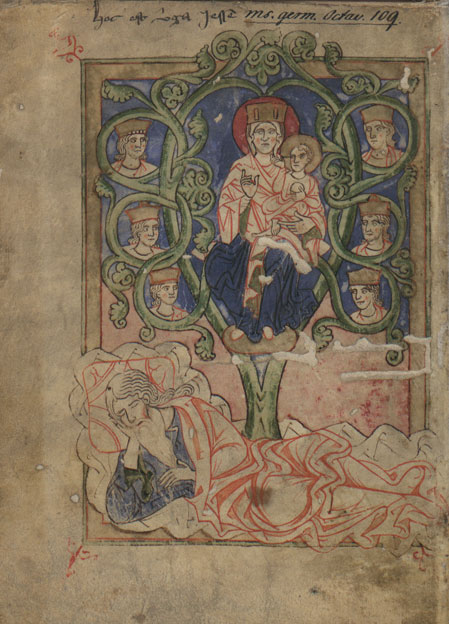 hoc est virga Jesse ms. germ. Octav. 109.